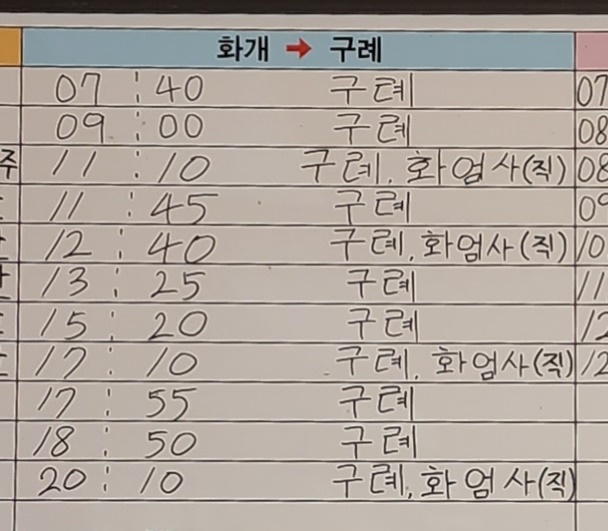 화개 → 구례
07 : 40 구례 07
09 : 00 구례 08
주 11 : 10 구례. 화엄사(직) 08
11 : 45 구례 09
12 : 40 구례, 화엄사(직) 10
13 : 25 구례 11
15 : 20 구례 12
17 : 10 구례, 화엄사(직) 12
17 : 55 구례
18 : 50 구례
20 : 10 구례, 화엄사(직)